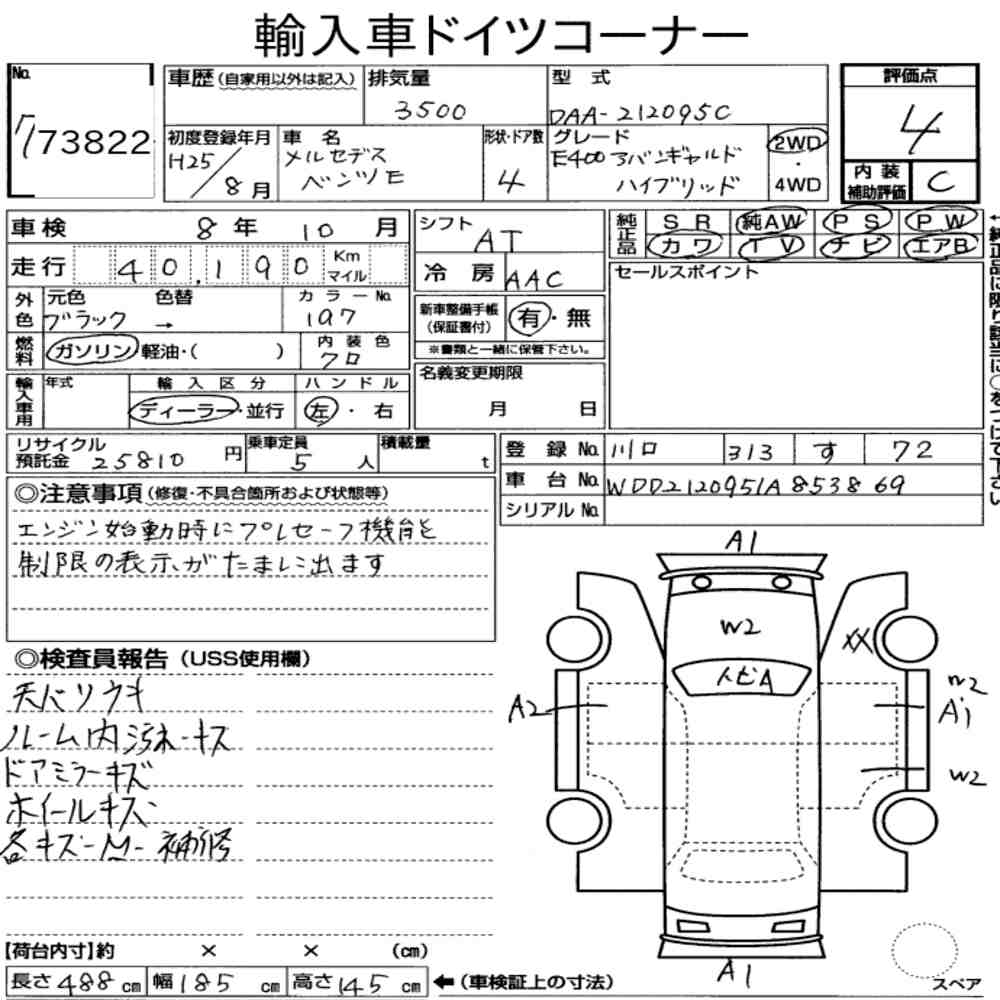 輸入車ドイツコーナー
No.
73822
車歴(自家用以外は記入)
排気量
3500
型 式
DAA-212095C
評価点
4
初度登録年月
H25/8月
車 名
メルセデス
ベンツE
形状・ドア数
4
グレード
E400アバンギャルド
ハイブリッド
2WD
・
4WD
内 装
補助評価
C
車検 8年 10月
シフト
AT
純正品
SR 純AW PS PW
カワ TV ナビ エアB
走行 40,190 Km マイル
冷 房 AAC
セールスポイント
外色
元色
ブラック
色替
→
カラーNo.
197
新車整備手帳
(保証書付)
有・無
※書類と一緒に保管下さい。
燃料
ガソリン・軽油・( )
内 装 色
クロ
名義変更期限
月 日
輸入車用
年式
輸 入 区 分
ディーラー・並行
ハ ン ド ル
左・右
リサイクル
預託金 25810円
乗車定員
5人
積載量
t
登 録 No. 川口 313 す 72
車 台 No. WDD2120951A853869
シリアル No.
◎注意事項(修復・不具合箇所および状態等)
エンジン始動時にプレセーフ機能を
制限の表示がたまに出ます
◎検査員報告(USS使用欄)
天バリウキ
ルーム内汚れ-キズ
ドアミラーキズ
ホイールキズ
各キズ-M-補修
A1
W2
トビA
XX
A2
W2
A1
W2
A1
スペア
【荷台内寸】約 × × (cm)
長さ488cm 幅185cm 高さ145cm ←(車検証上の寸法)